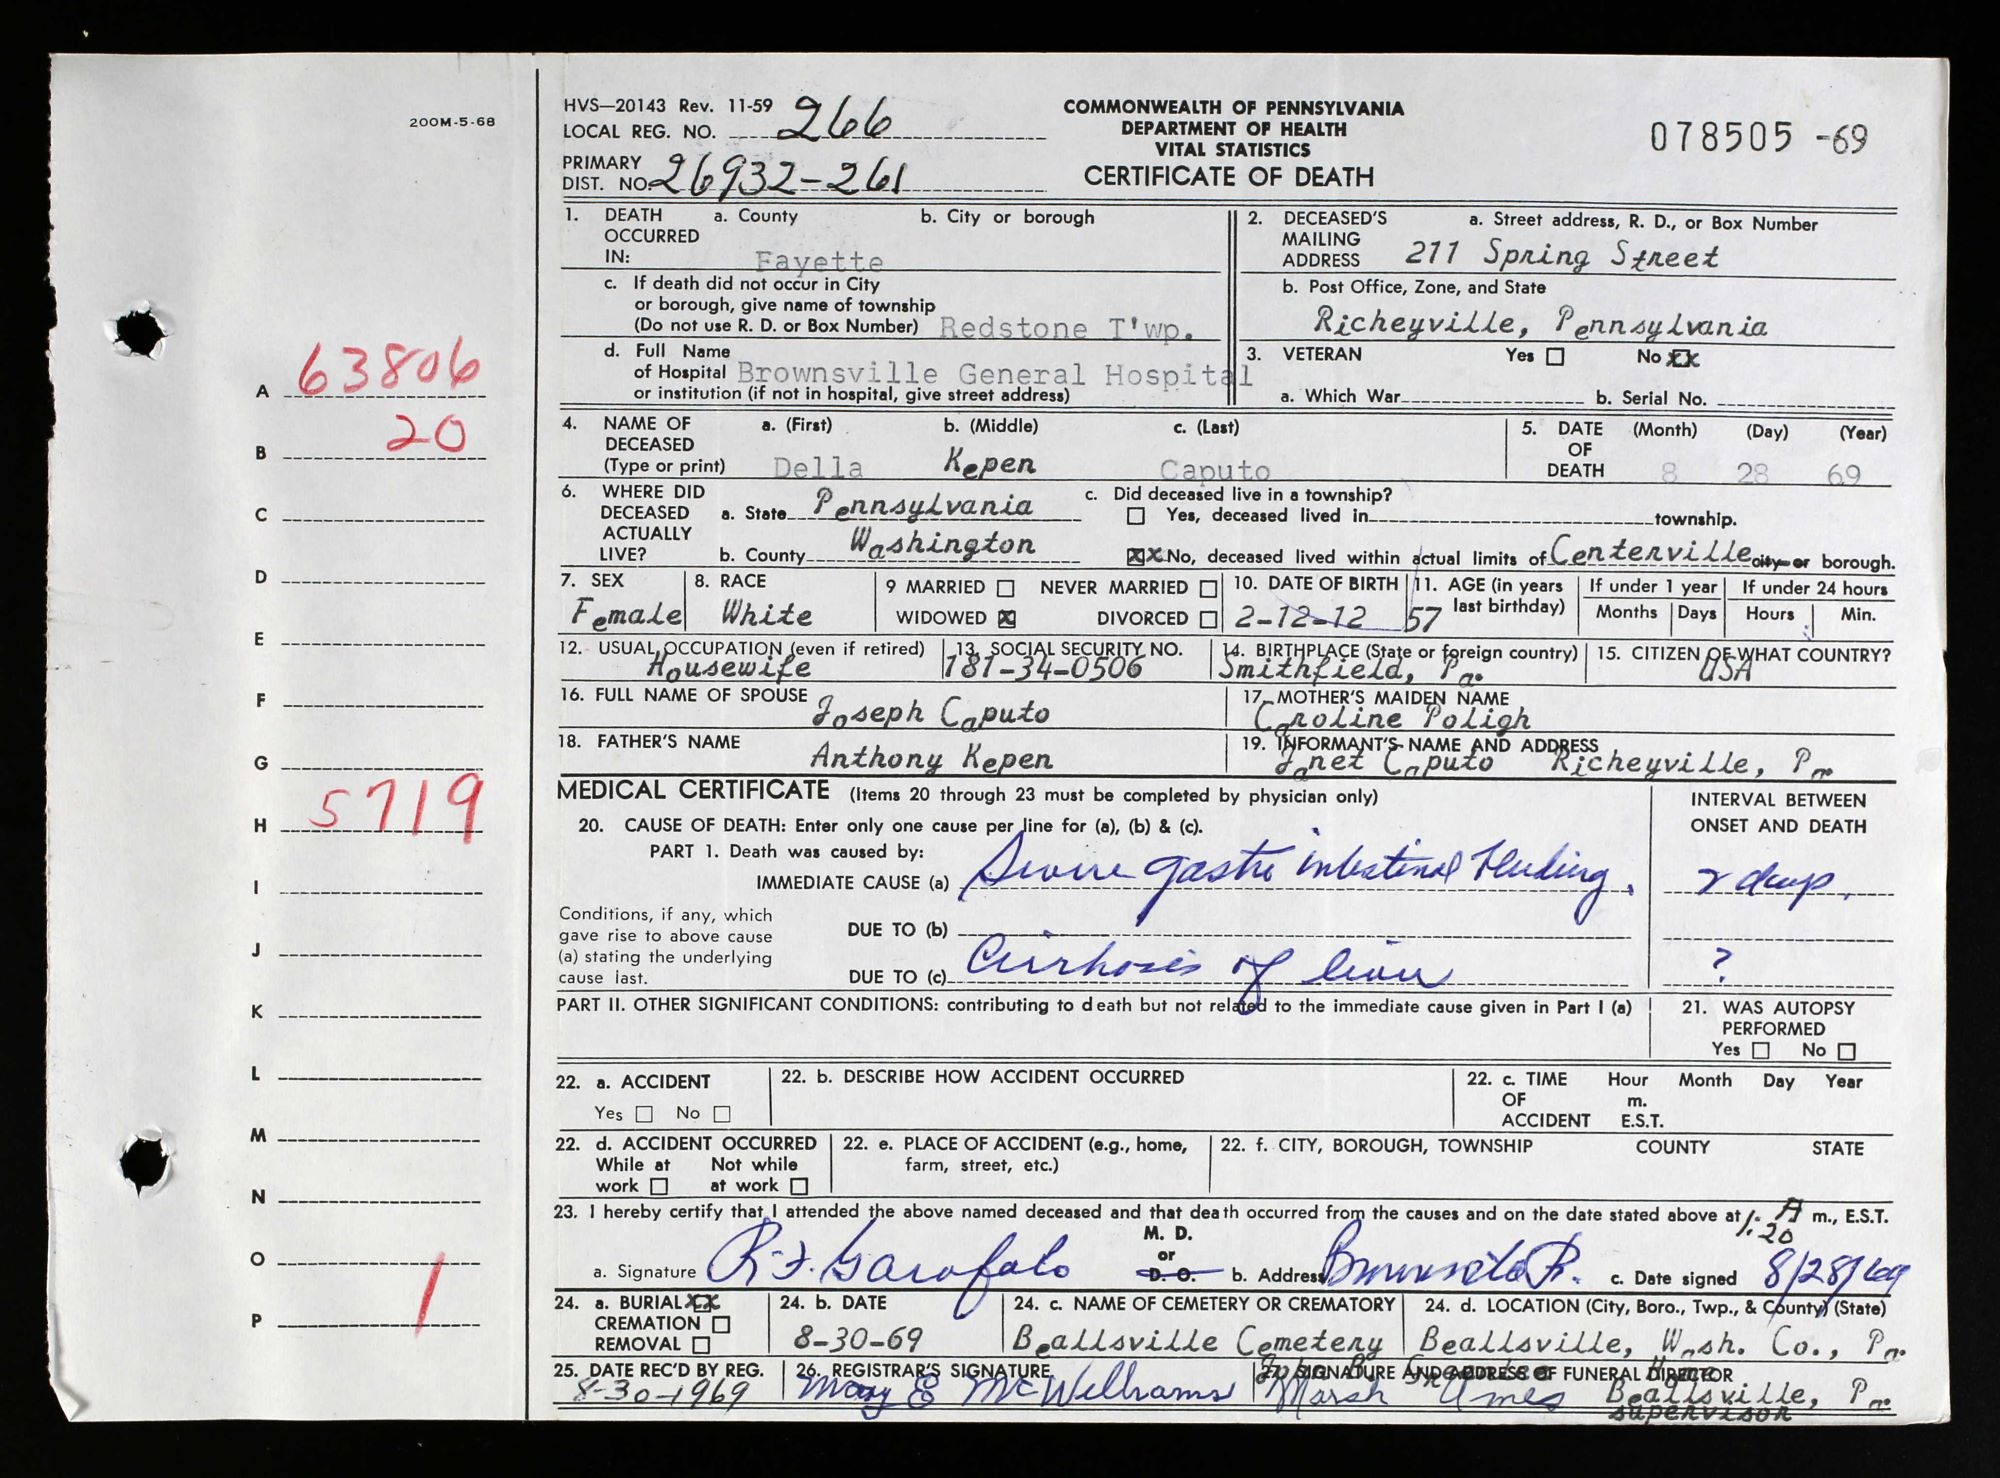 200M-5-68
HVS—20143 Rev. 11-59
LOCAL REG. NO. 266
PRIMARY DIST. NO. 26932-261
COMMONWEALTH OF PENNSYLVANIA
DEPARTMENT OF HEALTH
VITAL STATISTICS
CERTIFICATE OF DEATH
078505 -69
A 63806
B 20
C
D
E
F
G
H 5719
I
J
K
L
M
N
O
P 1
1. DEATH OCCURRED IN: a. County Fayette b. City or borough
c. If death did not occur in City
or borough, give name of township
(Do not use R. D. or Box Number) Redstone T'wp.
d. Full Name
of Hospital Brownsville General Hospital
or institution (if not in hospital, give street address)
2. DECEASED'S MAILING ADDRESS a. Street address, R. D., or Box Number
211 Spring Street
b. Post Office, Zone, and State
Richeyville, Pennsylvania
3. VETERAN Yes No XX
a. Which War b. Serial No.
4. NAME OF DECEASED (Type or print) a. (First) b. (Middle) c. (Last)
Della Kepen Caputo
5. DATE OF DEATH (Month) (Day) (Year)
8 28 69
6. WHERE DID DECEASED ACTUALLY LIVE? a. State Pennsylvania
b. County Washington
c. Did deceased live in a township?
Yes, deceased lived in township.
XX No, deceased lived within actual limits of Centerville city or borough.
7. SEX Female
8. RACE White
9 MARRIED NEVER MARRIED
WIDOWED X DIVORCED
10. DATE OF BIRTH 2-12-12
11. AGE (in years last birthday) 57
If under 1 year Months Days
If under 24 hours Hours Min.
12. USUAL OCCUPATION (even if retired) Housewife
13. SOCIAL SECURITY NO. 181-34-0506
14. BIRTHPLACE (State or foreign country) Smithfield, Pa.
15. CITIZEN OF WHAT COUNTRY? USA
16. FULL NAME OF SPOUSE Joseph Caputo
17. MOTHER'S MAIDEN NAME Caroline Poligh
18. FATHER'S NAME Anthony Kepen
19. INFORMANT'S NAME AND ADDRESS Janet Caputo Richeyville, Pa.
MEDICAL CERTIFICATE (Items 20 through 23 must be completed by physician only)
INTERVAL BETWEEN ONSET AND DEATH
20. CAUSE OF DEATH: Enter only one cause per line for (a), (b) & (c).
PART 1. Death was caused by:
IMMEDIATE CAUSE (a) Severe gastro intestinal bleeding. 2 days.
Conditions, if any, which
gave rise to above cause
(a) stating the underlying
cause last.
DUE TO (b)
DUE TO (c) Cirrhosis of liver ?
PART II. OTHER SIGNIFICANT CONDITIONS: contributing to death but not related to the immediate cause given in Part I (a)
21. WAS AUTOPSY PERFORMED
Yes No
22. a. ACCIDENT
Yes No
22. b. DESCRIBE HOW ACCIDENT OCCURRED
22. c. TIME OF ACCIDENT Hour m. E.S.T. Month Day Year
22. d. ACCIDENT OCCURRED
While at work Not while at work
22. e. PLACE OF ACCIDENT (e.g., home, farm, street, etc.)
22. f. CITY, BOROUGH, TOWNSHIP COUNTY STATE
23. I hereby certify that I attended the above named deceased and that death occurred from the causes and on the date stated above at 1:20 A m., E.S.T.
a. Signature R. F. Garofalo M. D. or D. O. b. Address Brownsville Pa. c. Date signed 8/28/69
24. a. BURIAL XX
CREMATION
REMOVAL
24. b. DATE
8-30-69
24. c. NAME OF CEMETERY OR CREMATORY
Beallsville Cemetery
24. d. LOCATION (City, Boro., Twp., & County) (State)
Beallsville, Wash. Co., Pa.
25. DATE REC'D BY REG.
8-30-1969
26. REGISTRAR'S SIGNATURE
Mary E McWilliams
27. SIGNATURE AND ADDRESS OF FUNERAL DIRECTOR
Marsh Ames Beallsville, Pa.
supervisor